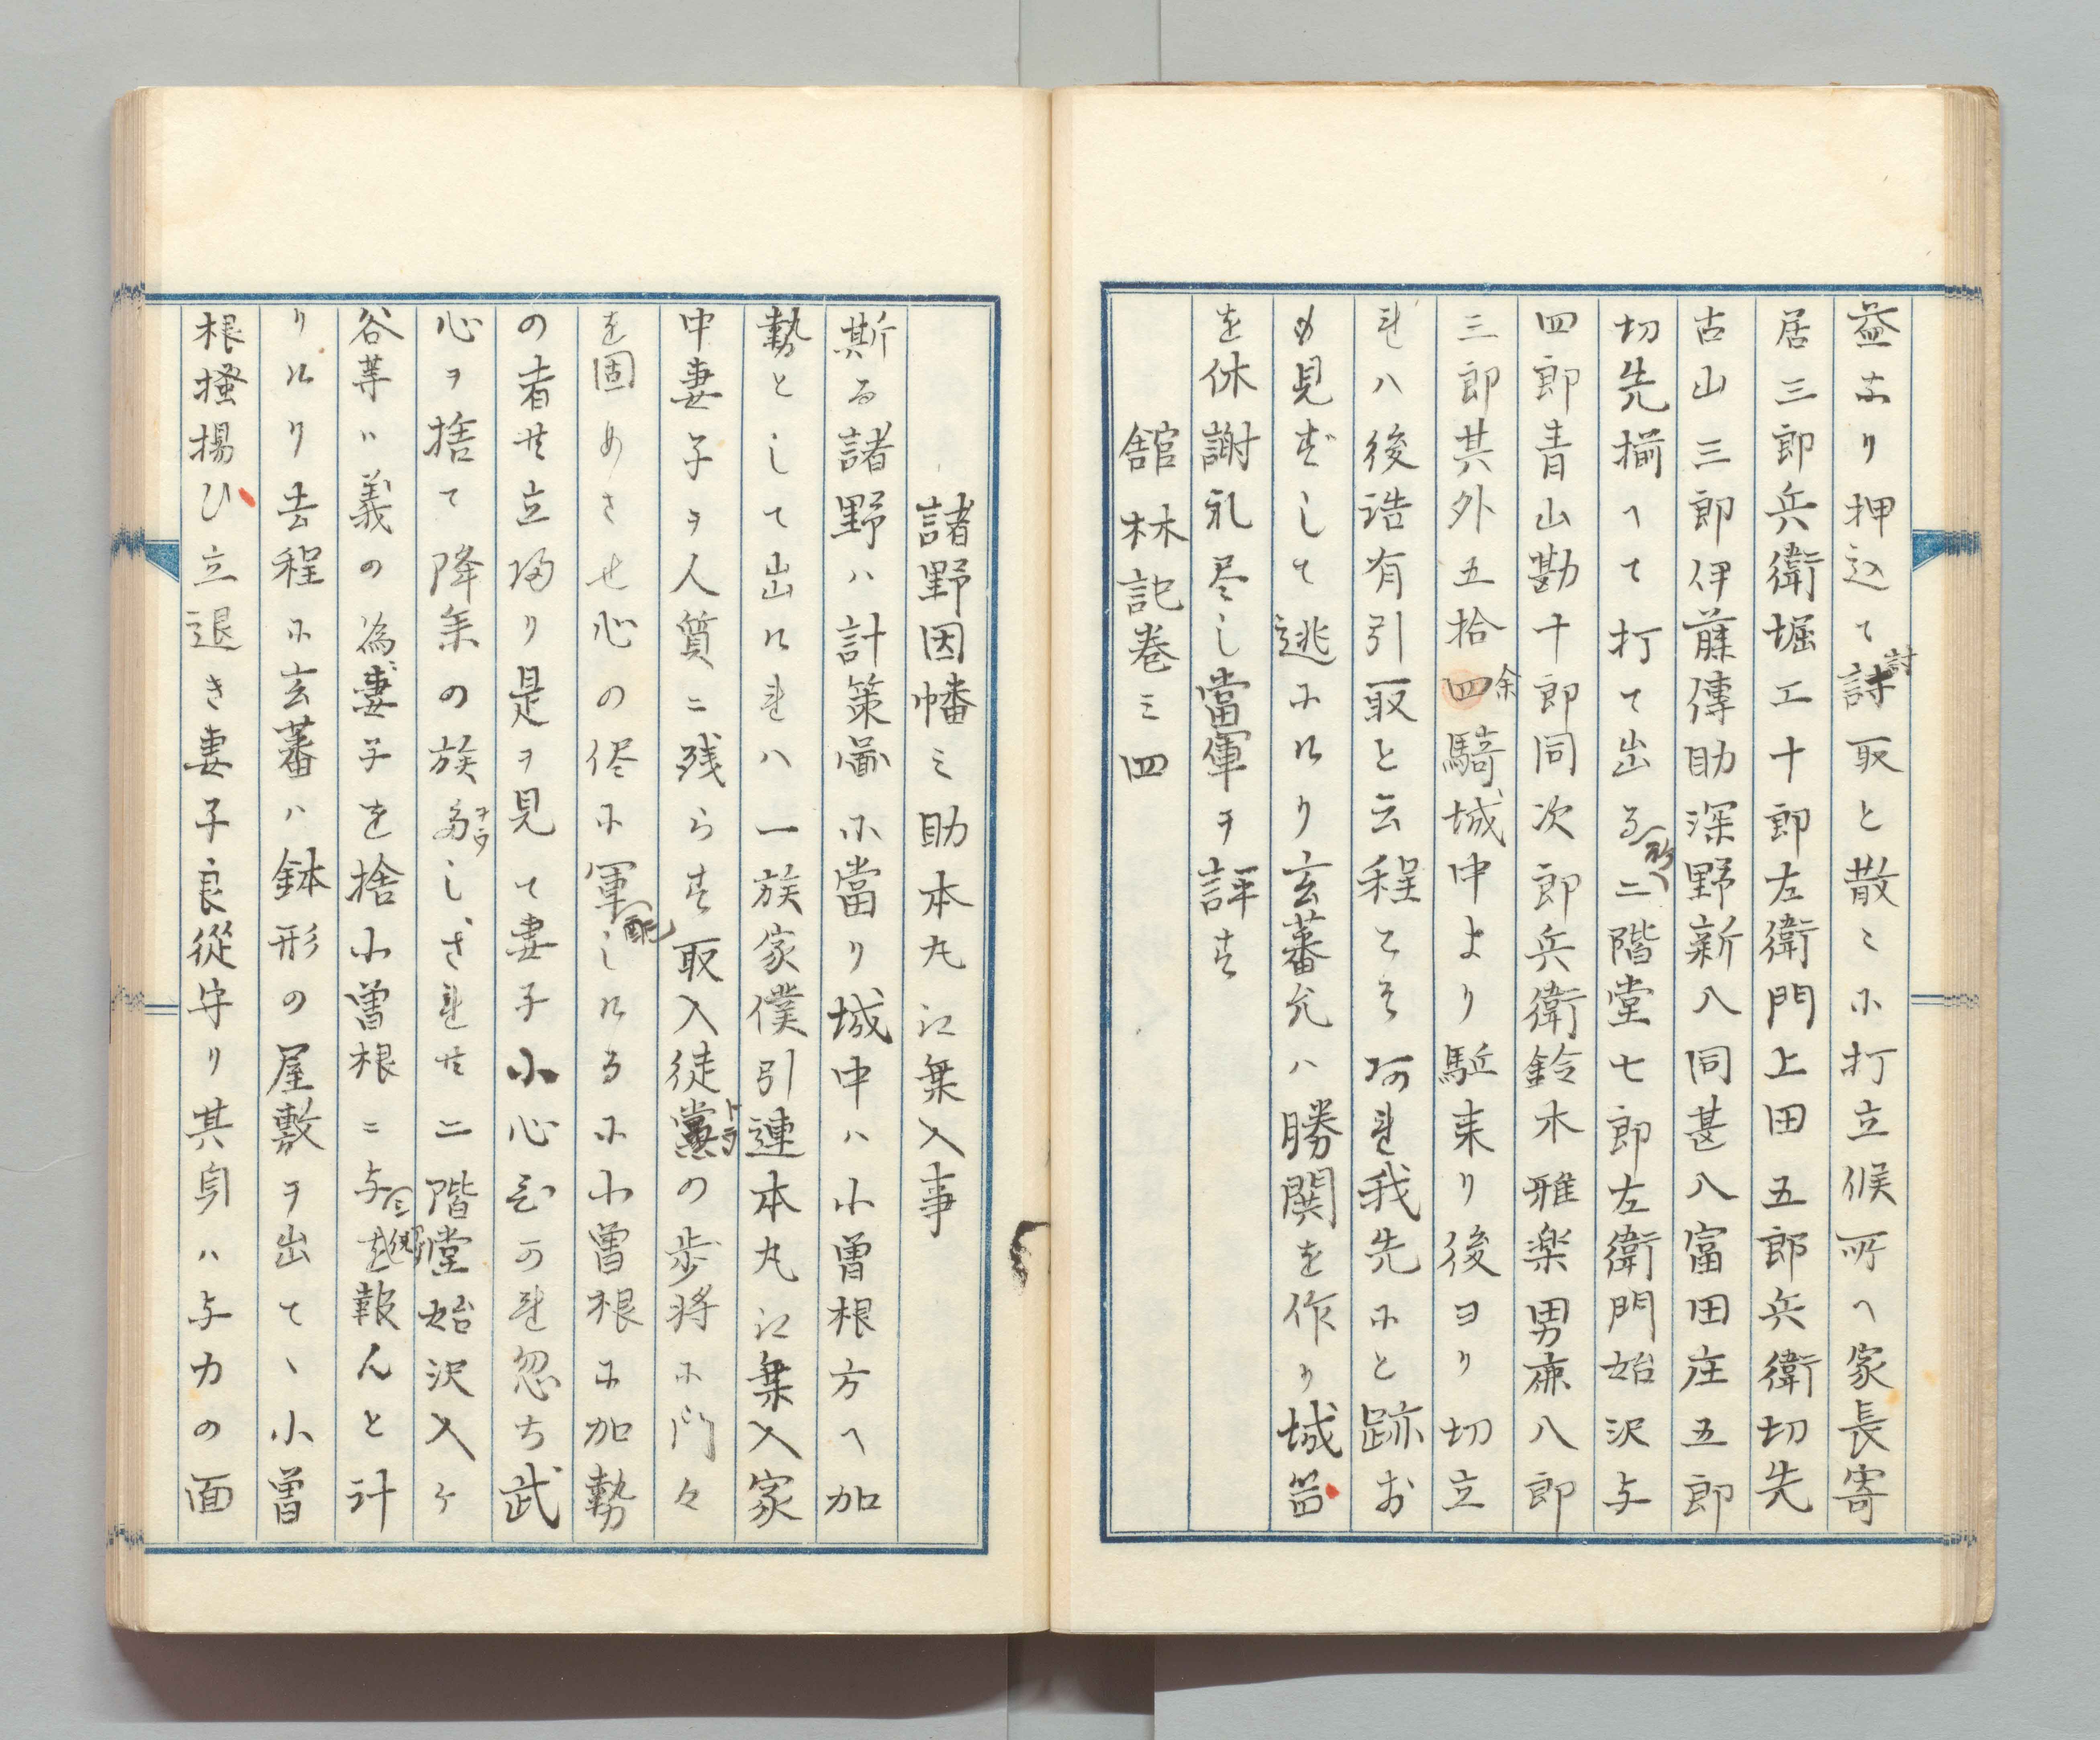 益なり押込て討取と散〻に打立候所へ家長寄
居三郎兵衛堀工十郎左衛門上田五郎兵衛切先
古山三郎伊藤傳助深野新八同甚八富田庄五郎
切先揃へて打て出る所へ二階堂七郎左衛門始沢与
四郎青山勘十郎同次郎兵衛鈴木雅楽男麻八郎
三郎其外五拾四余騎城中より駈来り後ヨリ切立
れハ後詰有引取と云程こそあれ我先にと跡お
も見ずして逃にけり玄蕃允ハ勝関を作り城
を休謝礼尽し當軍ヲ評す
舘林記巻三四
諸野因幡三助本丸江乗入事
斯る諸野ハ計策圖に當り城中ハ小曽根方へ加
勢として出けれハ一族家僕引連本丸江乗入家
中妻子ヲ人質ニ残らす取入徒黨トラの歩将に門々
を固めさせ心の侭に軍配しけるに小曽根に加勢
の者共立帰り是ヲ見て妻子小心もかれ忽ち武
心ヲ捨て降来の族多しされ共二階堂始沢入ケ
谷等ハ義の為妻子を捨小曽根ニ与を報んと計
りけり去程に玄蕃ハ鉢形の屋敷ヲ出て、小曽
根搔揚ひ立退き妻子良従守り其身ハ与力の面